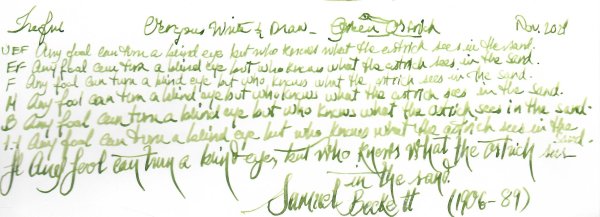 Trefui Oeropus Write & Draw - Green Ostrich Nov. 2021
UEF Any fool can turn a blind eye but who knows what the ostrich sees in the sand.
EF Any fool can turn a blind eye but who knows what the ostrich sees in the sand.
F Any fool can turn a blind eye but who knows what the ostrich sees in the sand.
M Any fool can turn a blind eye but who knows what the ostrich sees in the sand.
B Any fool can turn a blind eye but who knows what the ostrich sees in the sand.
1.1 Any fool can turn a blind eye but who knows what the ostrich sees in the sand.
Fl Any fool can turn a blind eye, but who knows what the ostrich sees
in the sand.
Samuel Beckett (1906-89)